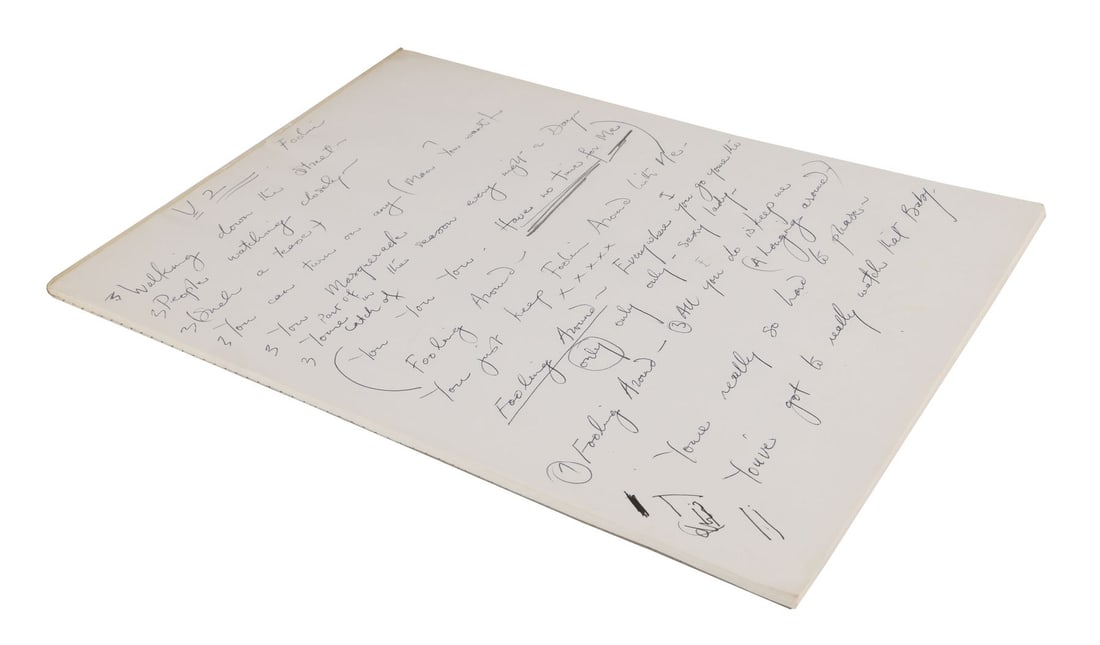 V 2 — Foolin
3 Walking down the street —
3 People watching closely —
3 (Such a teaser)
3 You can turn on any (man) you want
3 You Masquerade
Part of in
3 You're the season every night & Day
Catch of
(You You You - Have no time for Me)
Fooling Around - Foolin Around With Me -
You just keep x x x x x
Fooling Around - Everywhere you go you're the
only only only - sexy lady -
① Fooling Around - ③ All you do is keep me
(A hanging around)
You're really so hard to please -
You've got to really watch that Baby.